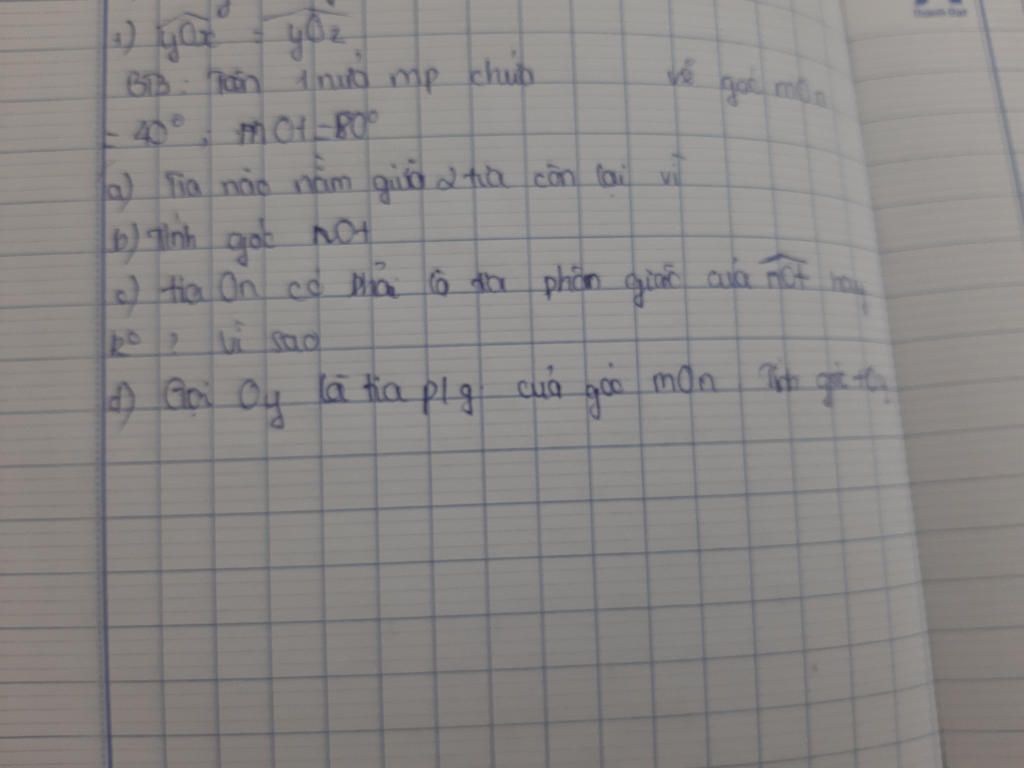 1) yOx = yOz
BTB: Trên 1 nửa mp chứa vẽ góc mOn
= 40°, mOt = 80°
a) Tia nào nằm giữa 2 tia còn lại vì
b) Tính góc nOt
c) tia On có phải là tia phân giác của mOt hay
k° ? Vì sao
d) Gọi Oy là tia p/g của góc mOn Tính góc